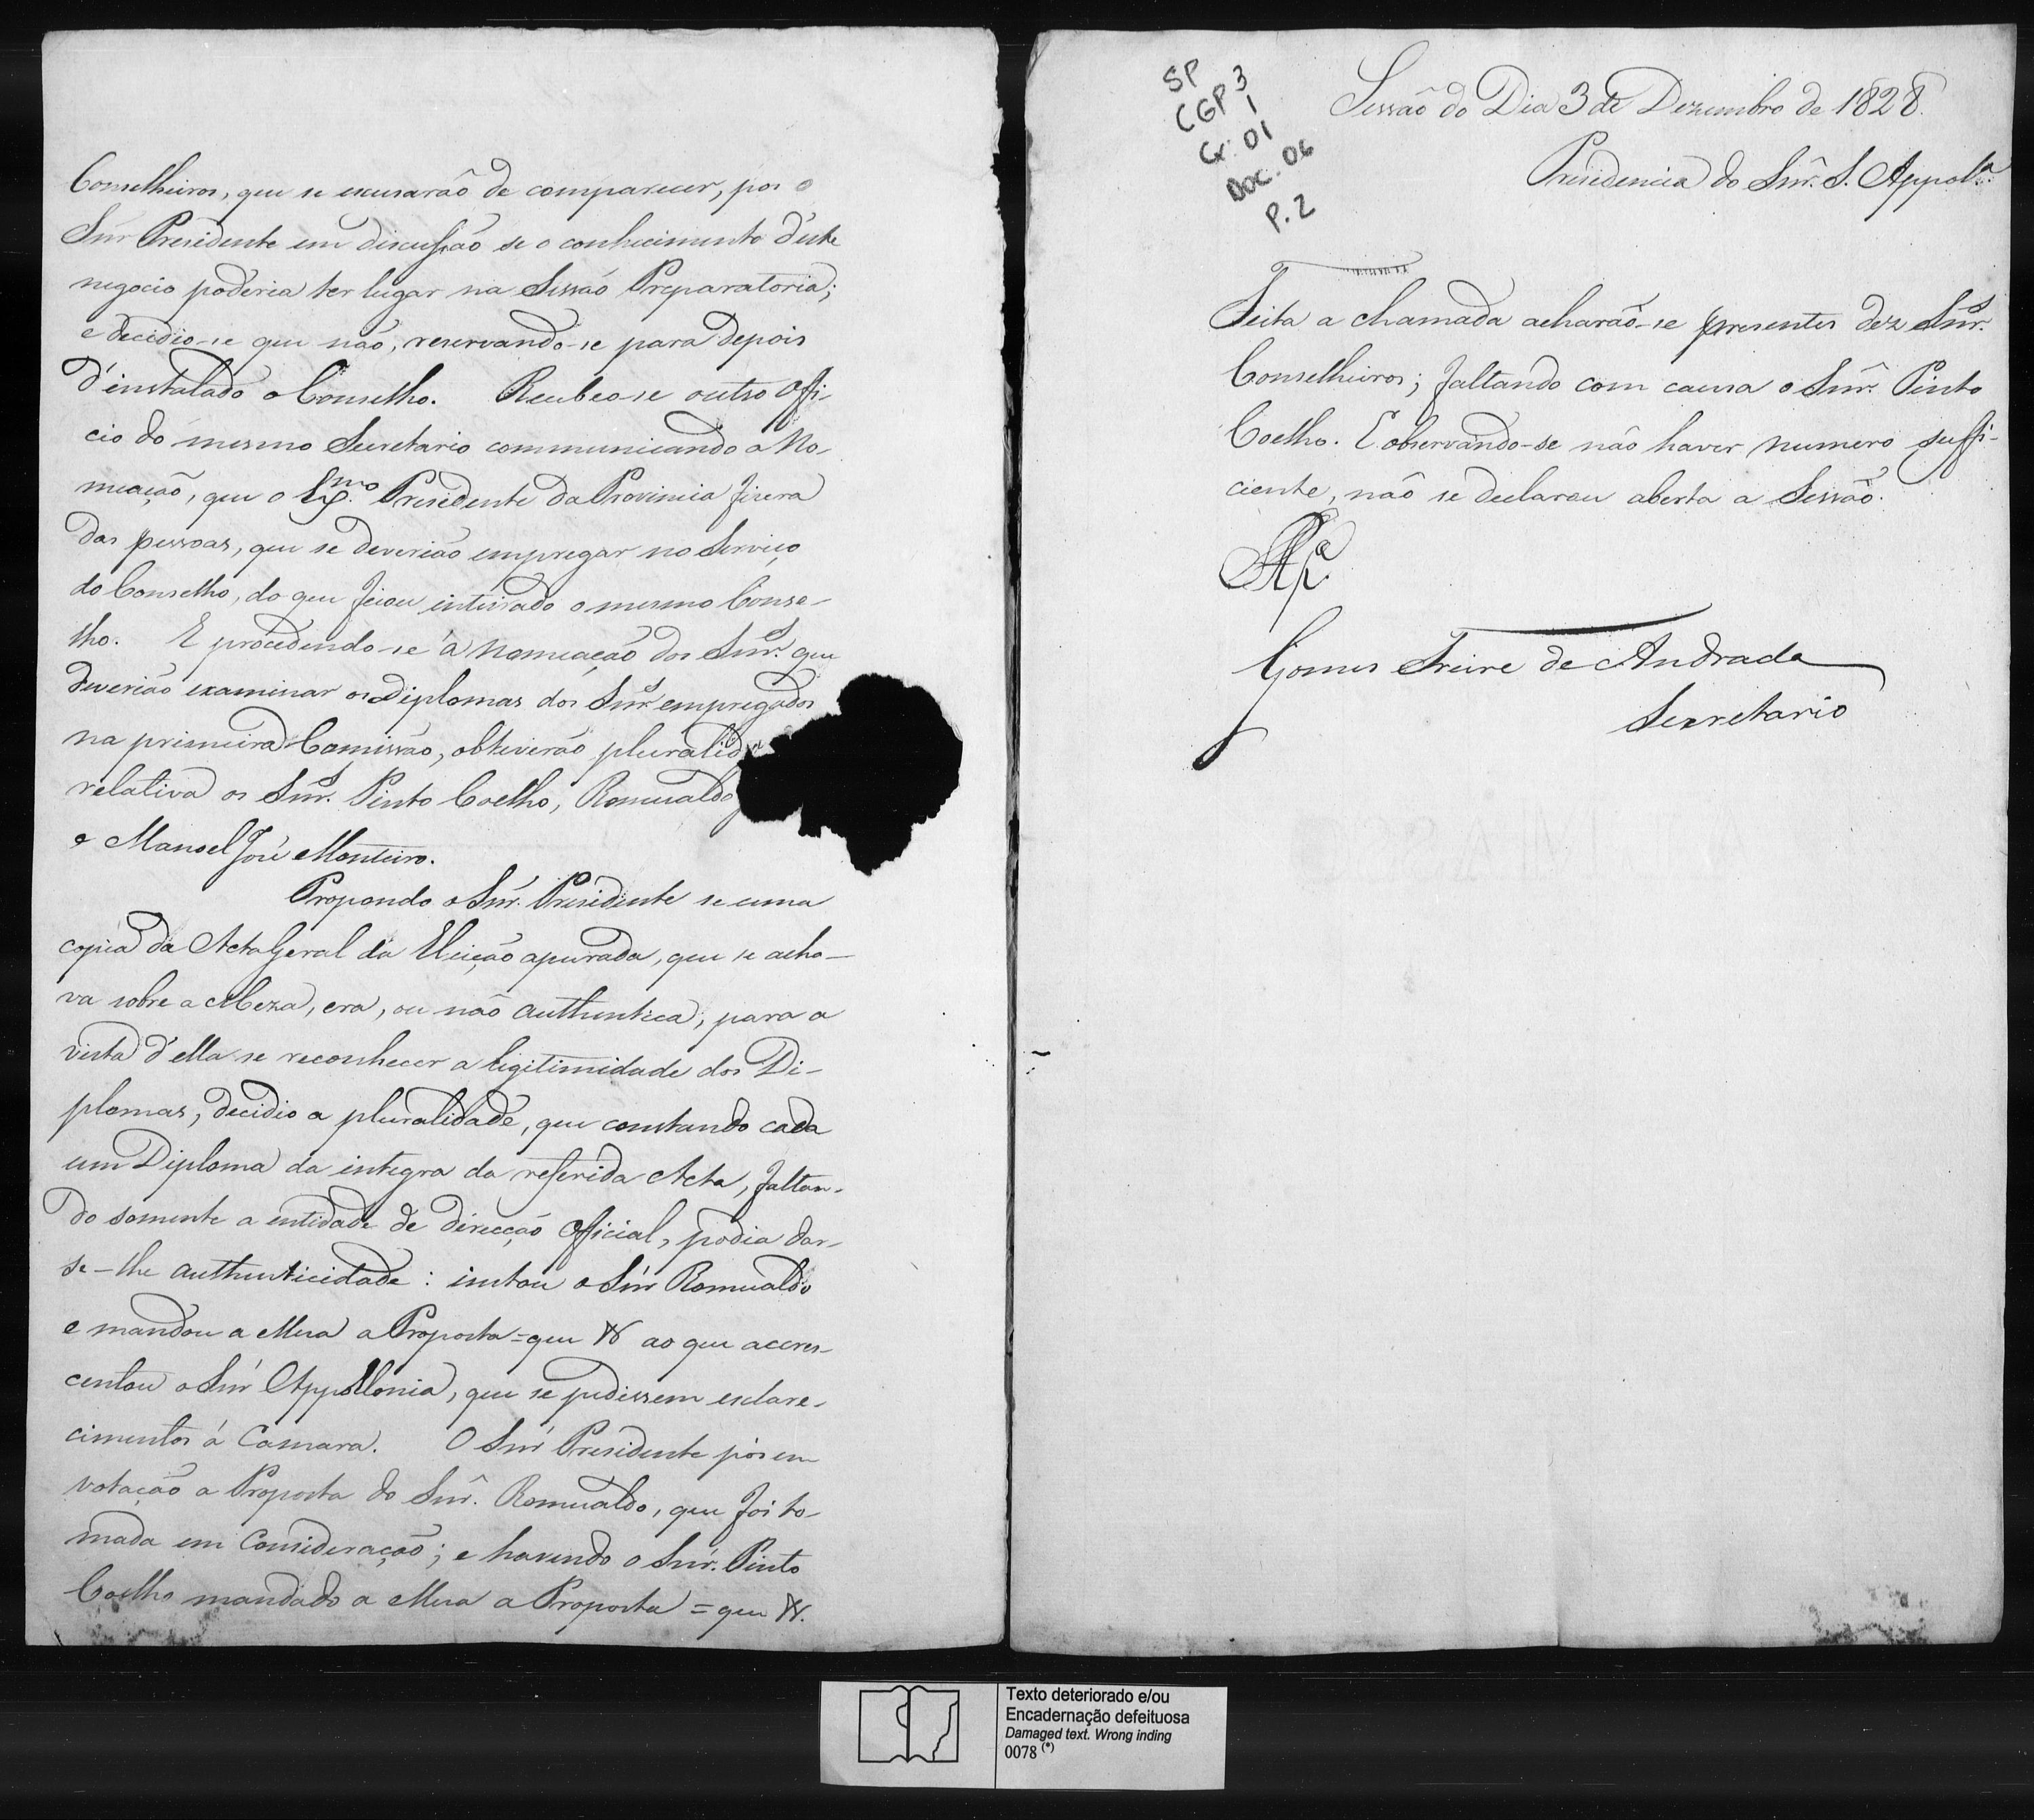 Conselheiros, que se excusarão de comparecer, pos o
Snr Presidente em discussão se o conhecimento d'este
negocio poderia ter lugar na Sessão Preparatoria;
e decidio-se que não, reservando-se para depois
d'installado o Conselho. Recebeo-se outro Offi-
cio do mesmo Secretario communicando a No-
meação, que o Exmo. Presidente da Provincia fizera
das pessoas, que se deverião empregar no Serviço
do Conselho, do que ficou inteirado o mesmo Conse-
lho. E procedendo-se á Nomeação dos Snrs. que
deverião examinar os Diplomas dos Snrs. empregados
na primeira Comissão, obtiverão pluralid
relativa os Snrs. Pinto Coelho, Romualdo
e Manoel José Monteiro.
Propondo o Snr. Presidente se uma
copia da Acta Geral da Eleição apurada, que se acha-
va sobre a Meza, era, ou não authentica, para a
vista d'ella se reconhecer a legitimidade dos Di-
plomas, decidio a pluralidade, que constando cada
um Diploma da integra da referida Acta, faltan-
do somente a entidade de direcção Official, podia dar-
se-lhe authenticidade: instou o Snr Romualdo
e mandou a Meza a Proposta = que V ao que acres-
centou o Snr Appollonia, que se pedissem esclare-
cimentos á Camara. O Snr Presidente pôs em
votação a Proposta do Snr. Romualdo, que foi to-
mada em Consideração; e havendo o Snr. Pinto
Coelho mandado a Meza a Proposta = que V.
SP
CGP3
1
Cx. 01
Doc. 06
P. 2
Sessão do Dia 3 de Dezembro de 1828.
Presidencia do Snr. S. Appola.
Feita a chamada acharão-se presentes dez Snrs.
Conselheiros; faltando com causa o Snr. Pinto
Coelho. E observando-se não haver numero suffi-
ciente, não se declarou aberta a Sessão.
Gomes Freire de Andrada
Secretario
Texto deteriorado e/ou
Encadernação defeituosa
Damaged text. Wrong inding
0078 (*)